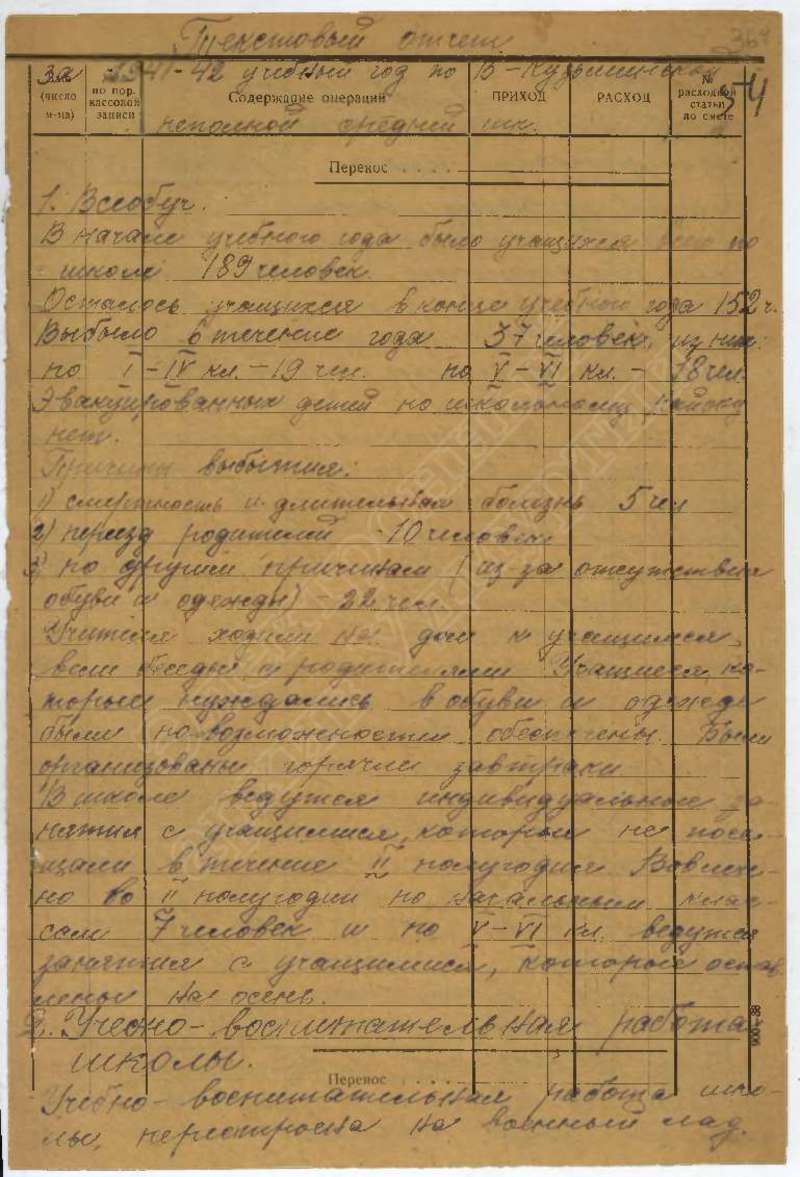 Текстовый отчет
364
за 1941-42 учебный год по В-Кузьминской
54
(число м-ца)
№№ по пор. кассовой записи
Содержание операций
ПРИХОД
РАСХОД
№ расходной статьи по смете
неполной средней шк.
Перенос . . . .
1. Всеобуч.
В начале учебного года было учащихся всего по
школе 189 человек.
Осталось учащихся в конце учебного года 152 ч.
Выбыло в течение года 37 человек, из них:
по I-IV кл. - 19 чел. по V-VI кл. - 18 чел.
Эвакуированных детей по школьному району
нет.
Причины выбытия:
1) смертность и длительная болезнь 5 чел
2) переезд родителей - 10 человек
3) по другим причинам (из-за отсутствия
обуви и одежды) 22 чел.
Учителя ходили на дом к учащимся,
вели беседы с родителями Учащиеся, ко-
торые нуждались в обуви и одежде
были по возможности обеспечены. Были
организованы горячие завтраки
В школе ведутся индивидуальные за-
нятия с учащимися, которые не посе-
щали в течение II полугодия Вовлече-
но во II полугодии по начальным клас-
сам 7 человек и по V-VI кл. ведутся
занятия с учащимися, которые остав-
лены на осень.
2. Учебно-воспитательная работа
школы.
Перенос . . . .
Учебно-воспитательная работа шко-
лы, перестроена на военный лад.